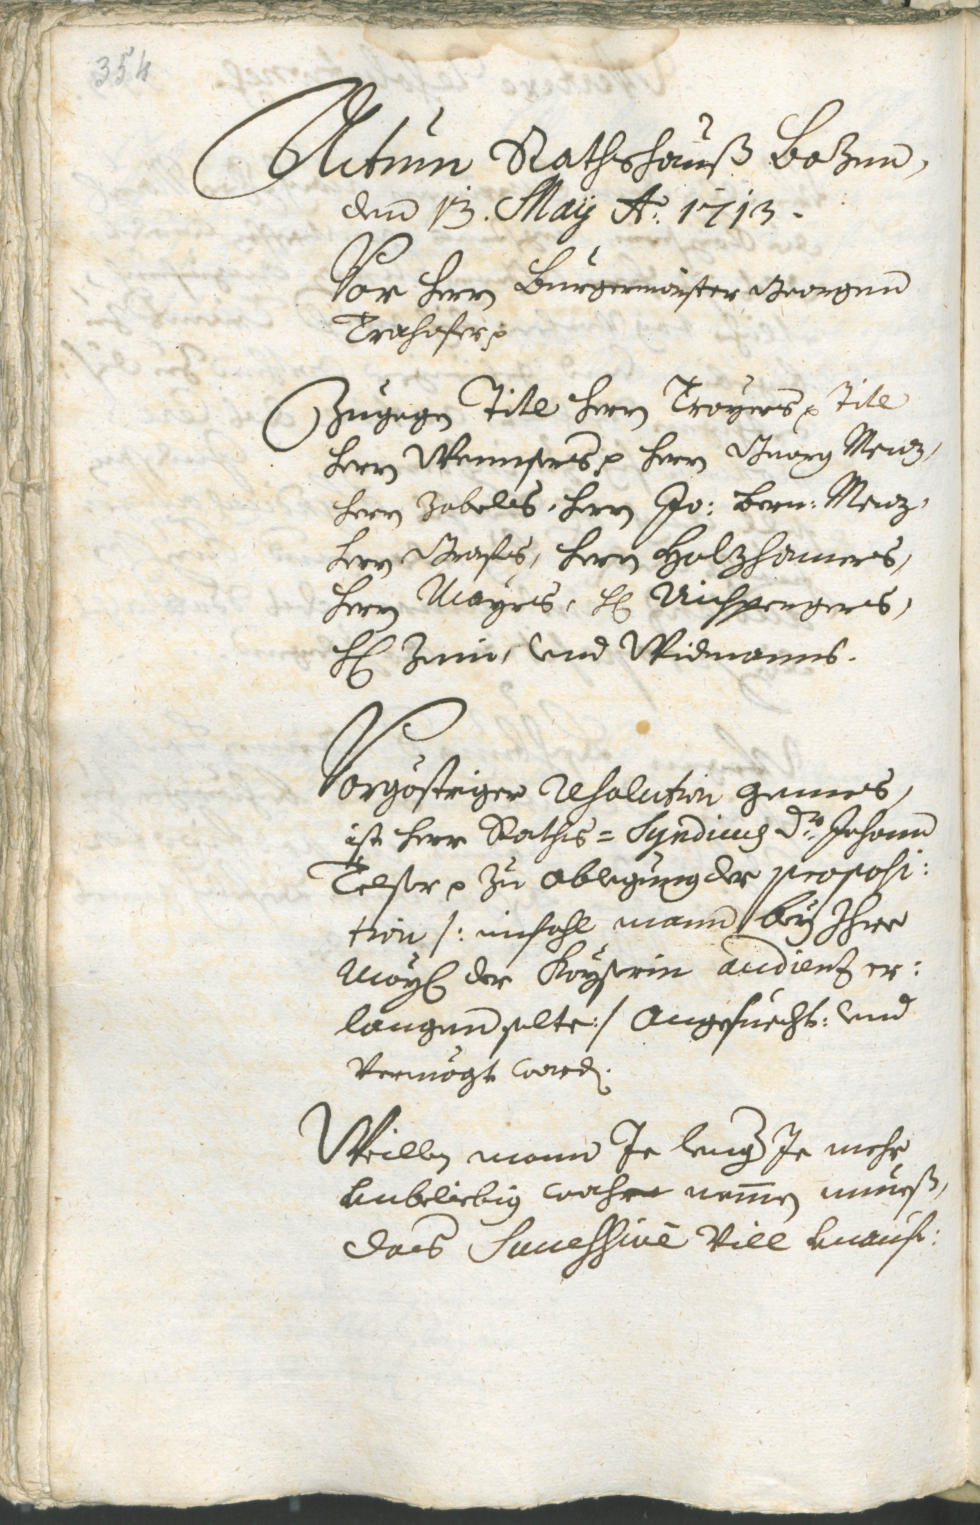 354
Actum Rathshauß Botzen,
den 13. May Ao: 1713.
Vor herrn Burgermaister Georgen
Trahofer p
Zugegen Titl herrn Troyers p Titl
herrn Wennsers p herrn Georg Menz,
herrn Zobeles, herrn Jo: Bern: Menz,
herrn Grafes, herrn Holzhamers,
herrn Mayrs, H: Aichpergers,
H: Zinn, vnd Widmanns.
Vorgöstriger Resolution gemes,
ist herr Raths=Syndicus Dr. Johann
Telser p zu ablegung der proposi:
tion /: imfahl mann bey Ihro
May: der Kayserin audienz er:
langen solte :/ angesuecht: vnd
vermögt word.
Weillen mann Je leng Je mehr
vnbeliebig wahr nemmen mueß,
das Successive vill